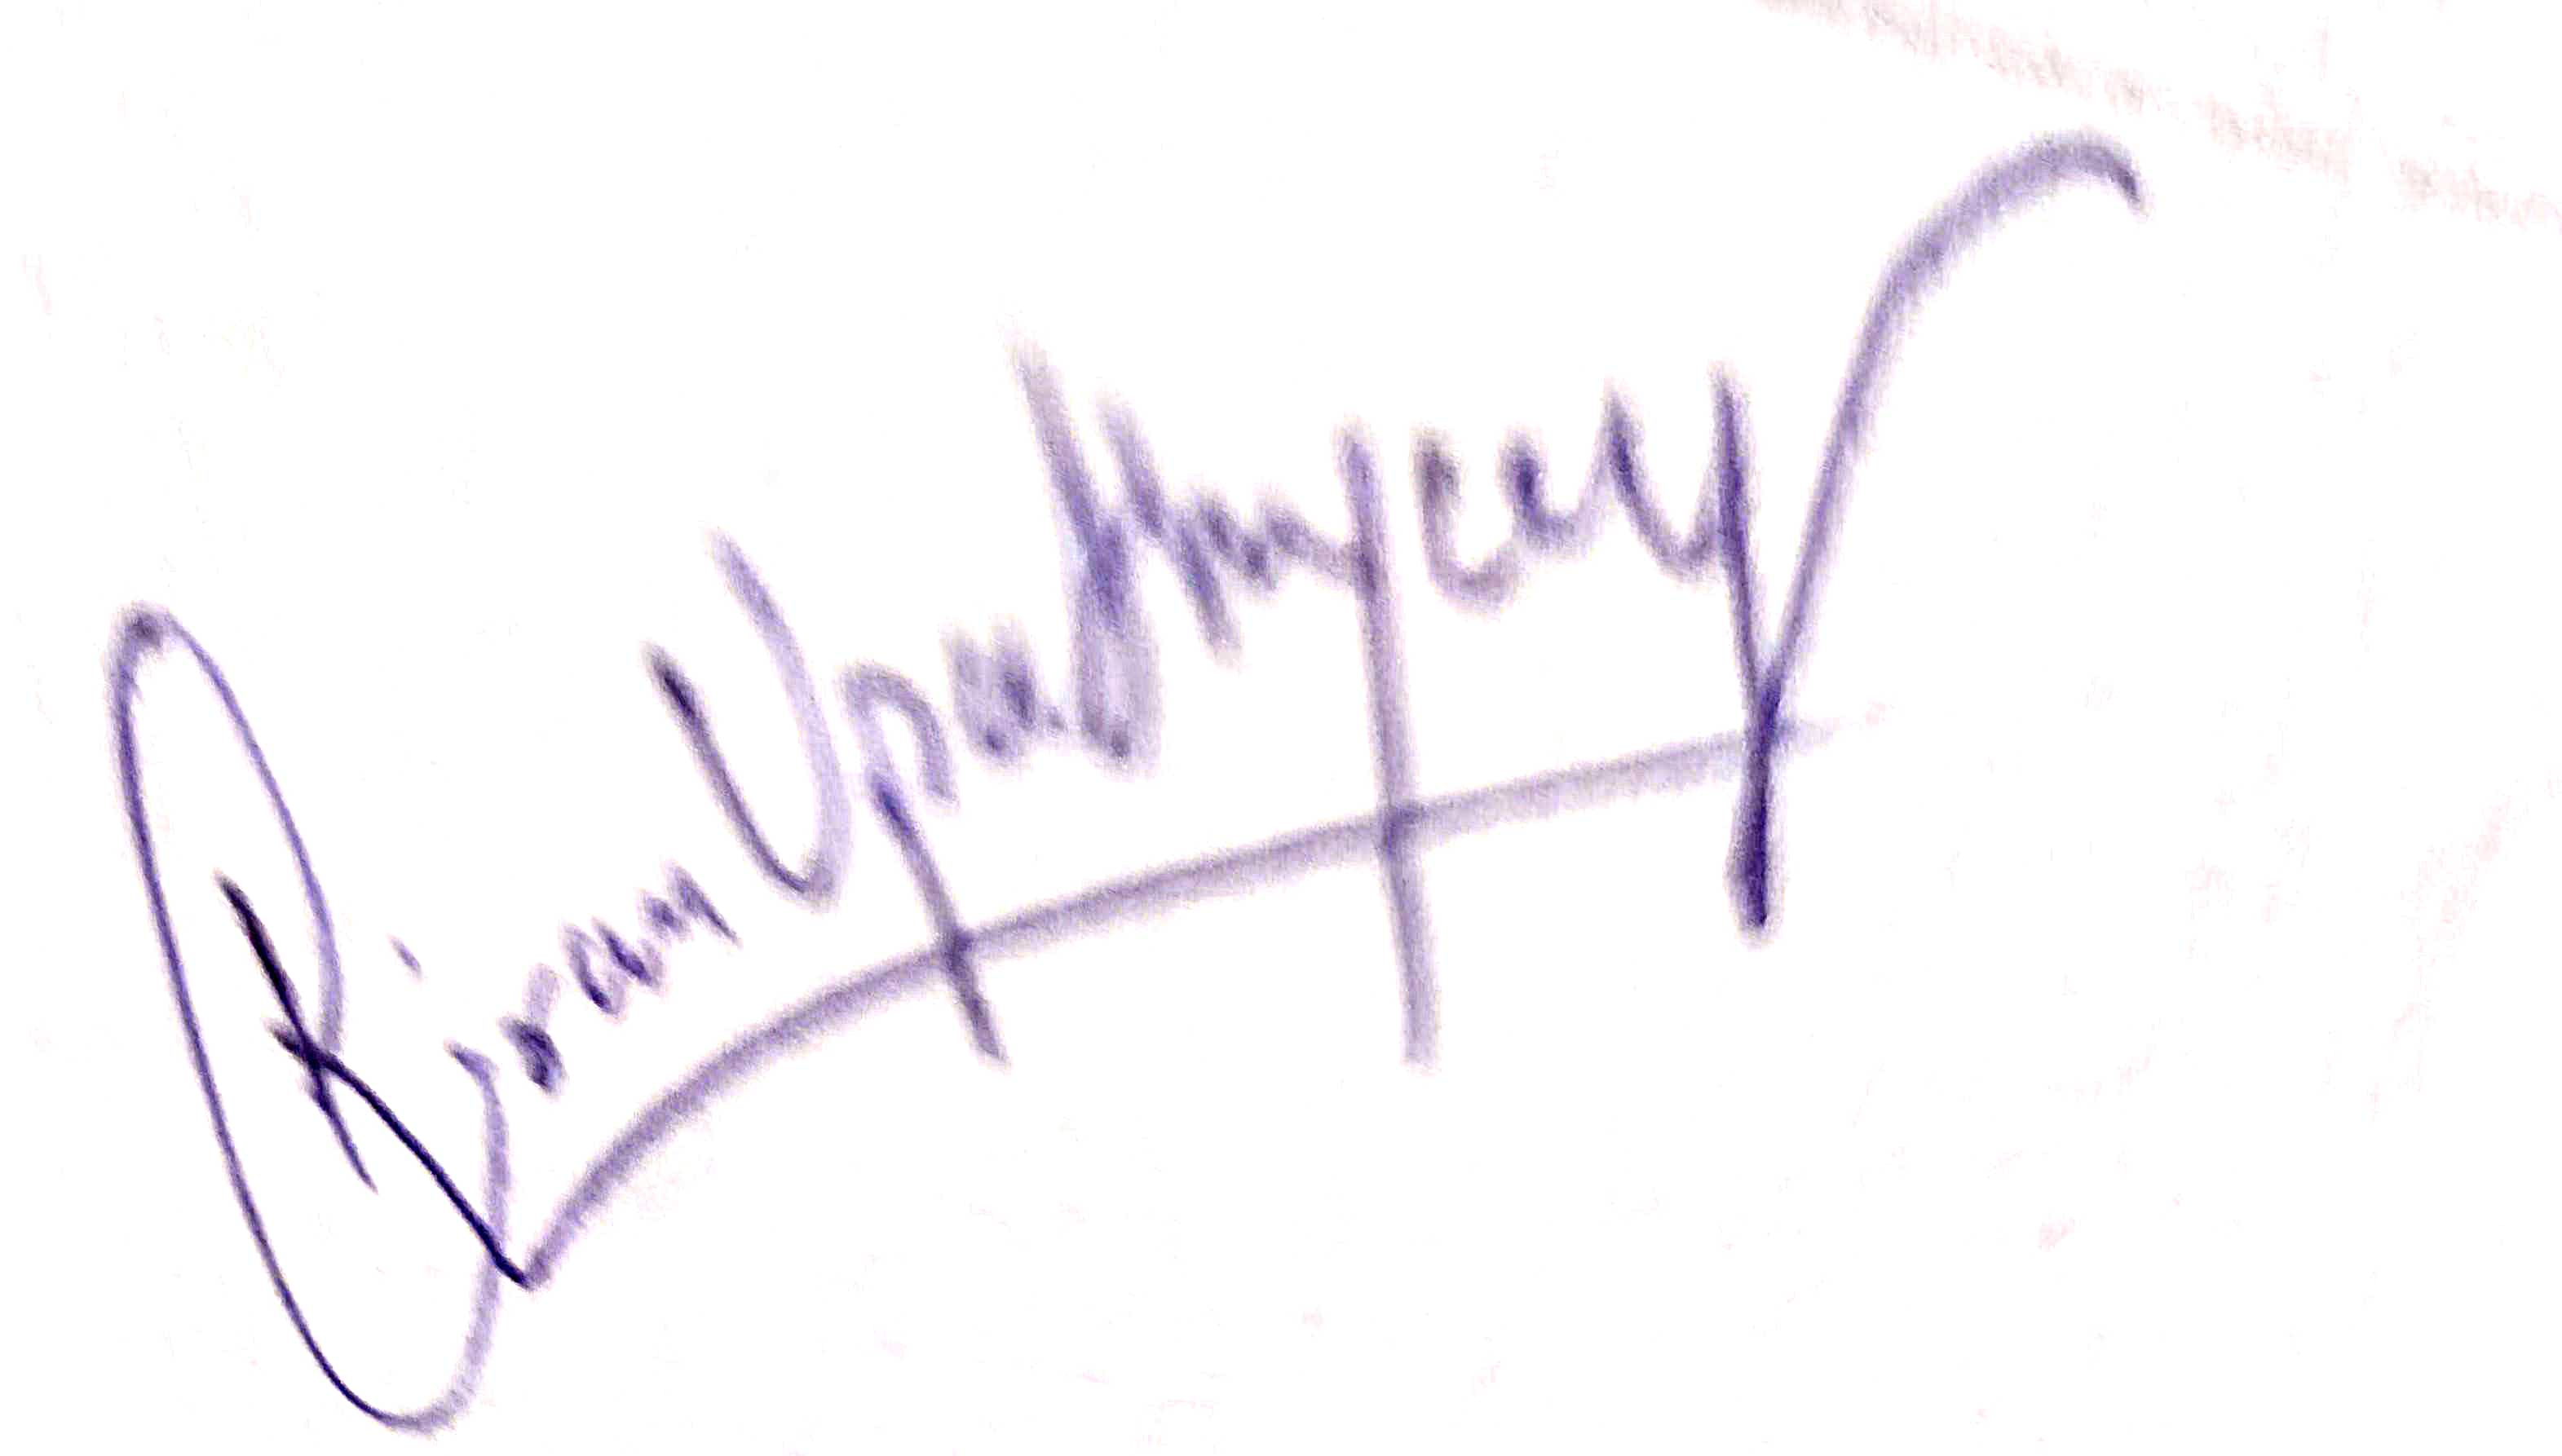 Kiran Upadhyay